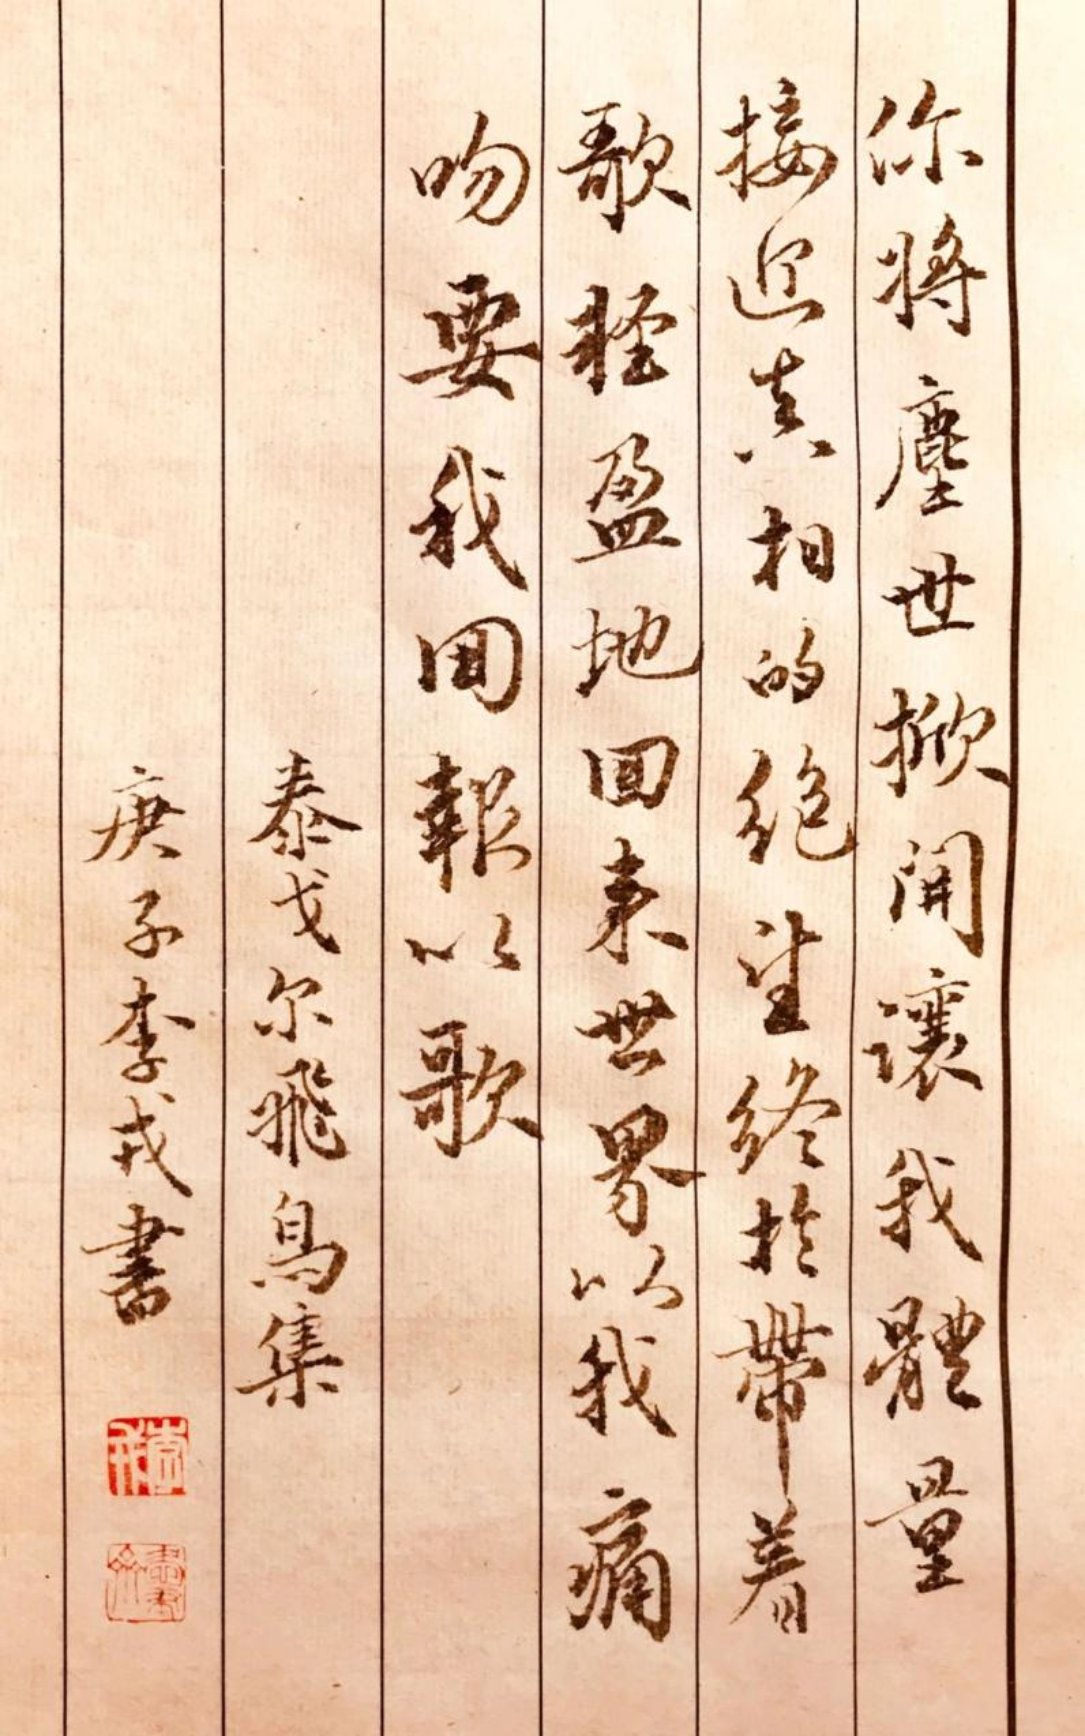 你將塵世掀開讓我體量
接近真相的絕望終於帶着
歌輕盈地回来世界以我痛
吻要我回報以歌
泰戈尔飛鳥集
庚子李戎書
李戎